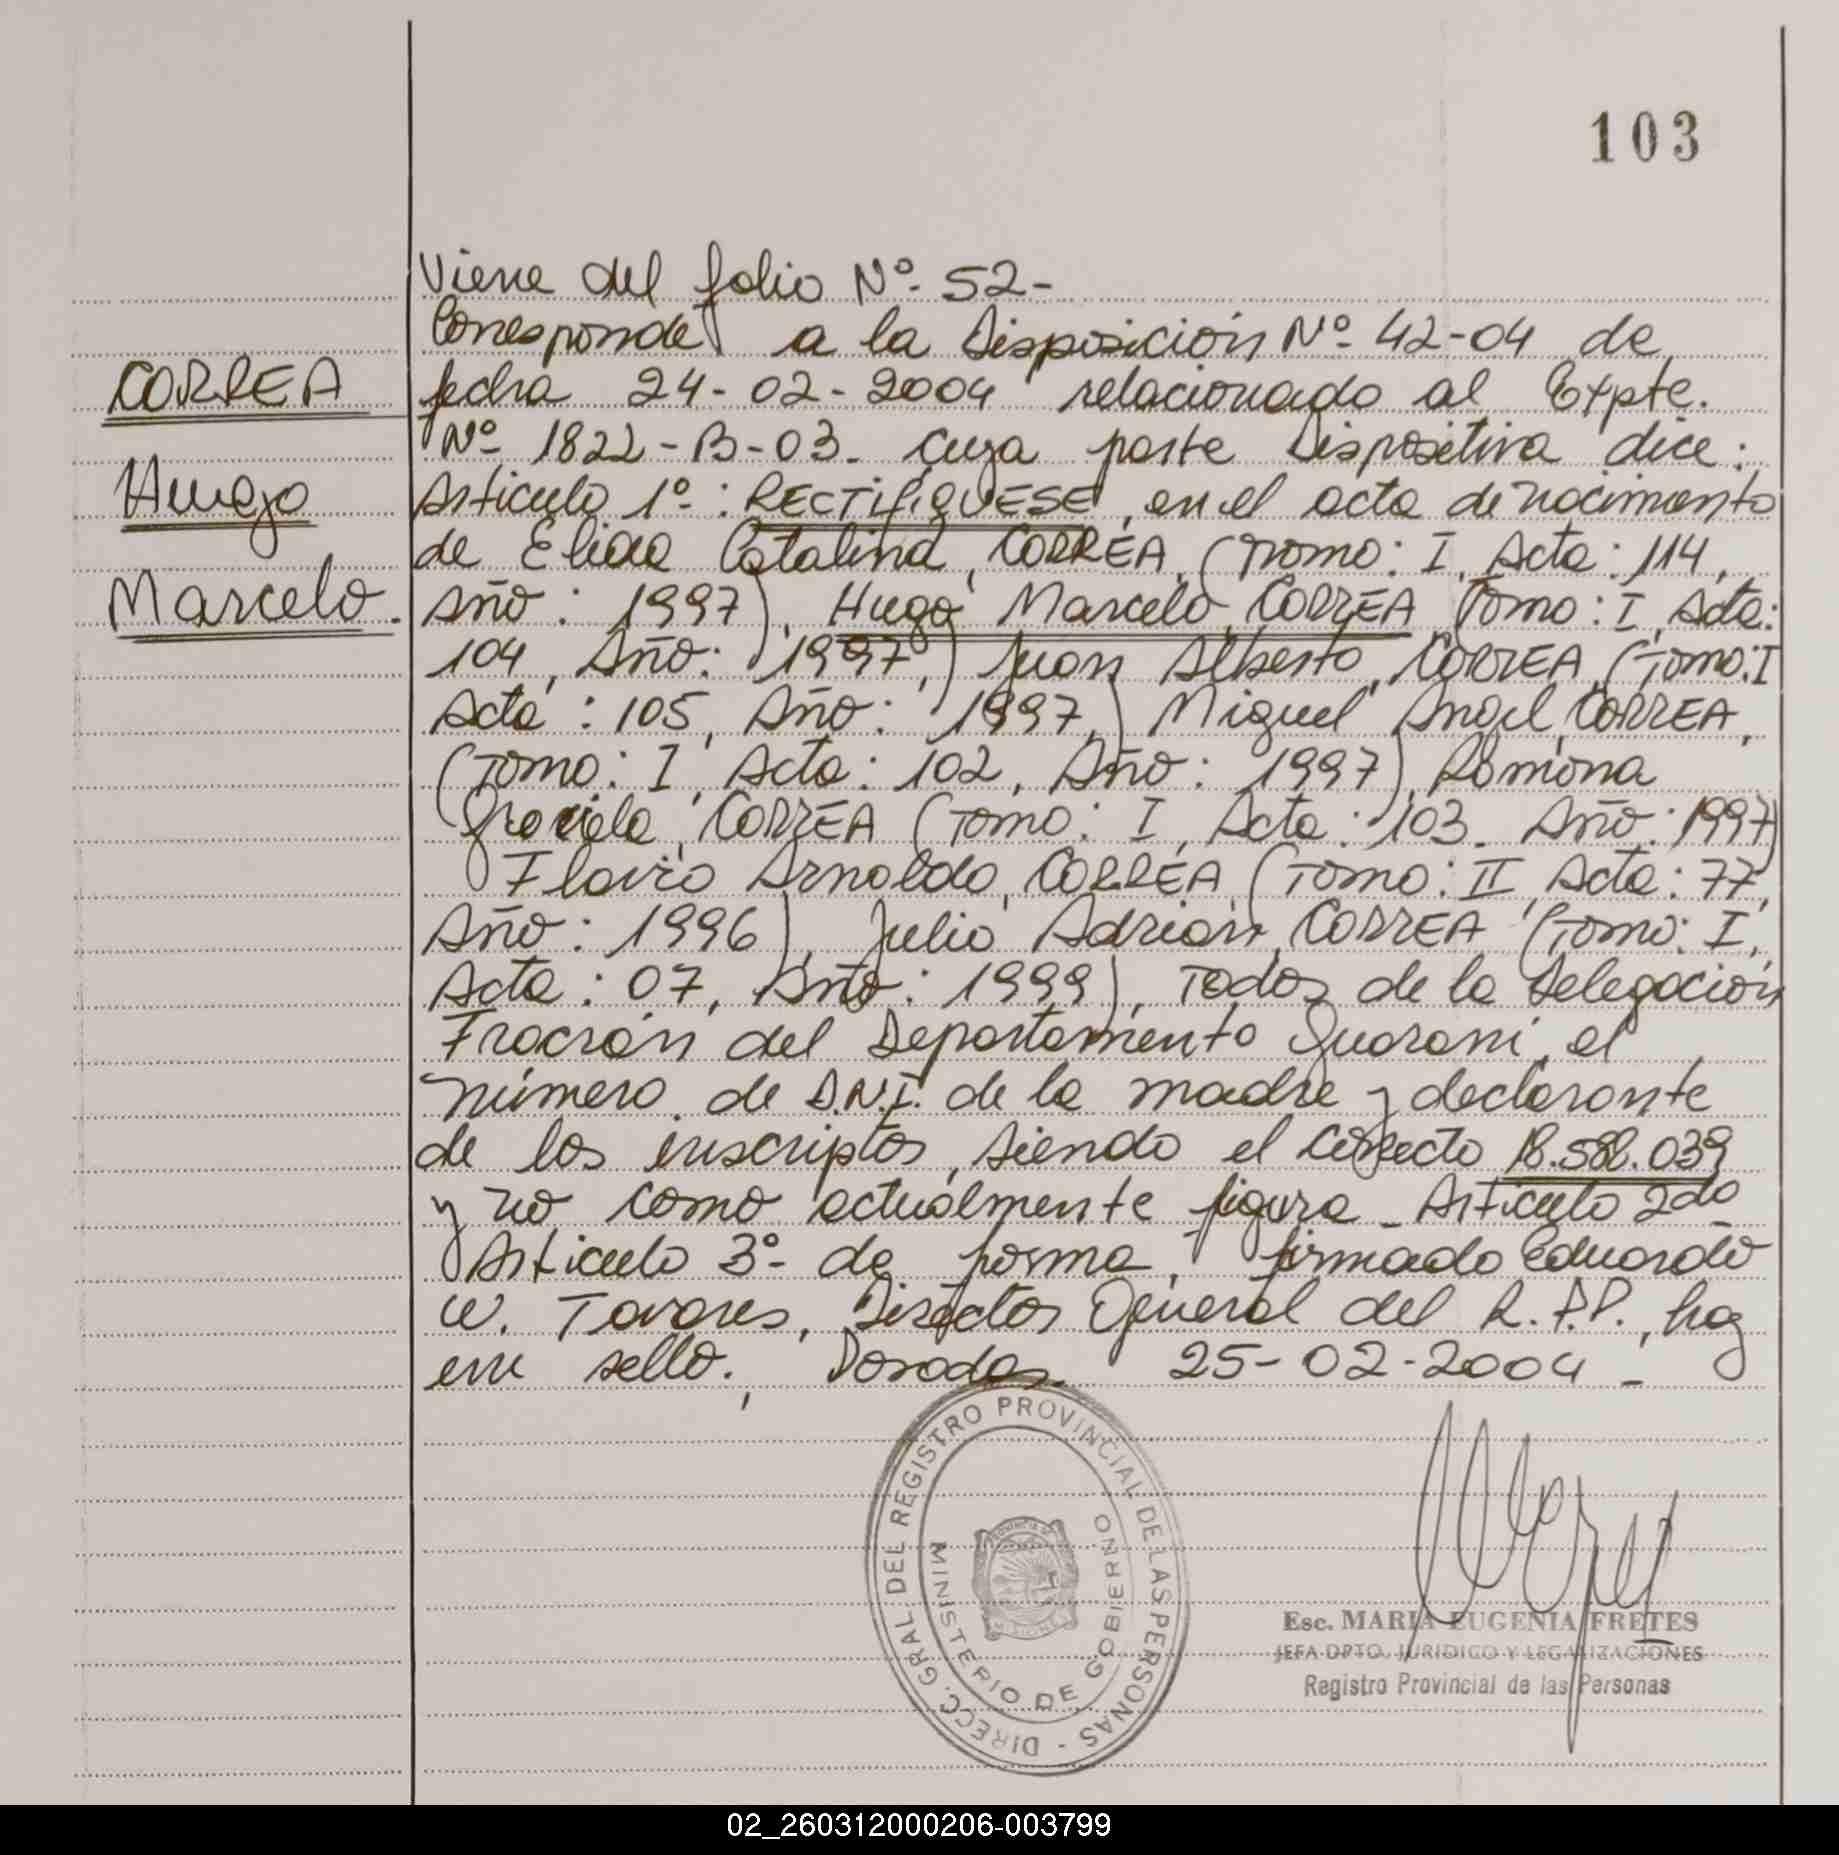 103
Viene del folio Nº 52-
Corresponde a la Disposición Nº 42-04 de
CORREA
fecha 24-02-2004 relacionado al Expte.
Nº 1822-B-03. Cuya parte Dispositiva dice:
Hugo
Artículo 1º: RECTIFIQUESE, en el acta de nacimiento
de Elida Catalina, CORREA, (Tomo: I, Acta: 114,
Marcelo.
Año: 1997), Hugo Marcelo CORREA (Tomo: I, Acta:
104, Año: 1997,) Juan Alberto, CORREA, (Tomo: I
Acta: 105, Año: 1997,) Miguel Angel, CORREA,
(Tomo: I, Acta: 102, Año: 1997), Ramona
Graciela, CORREA (Tomo: I, Acta: 103. Año: 1997)
Flavio Arnoldo, CORREA, (Tomo: II, Acta: 77,
Año: 1996), Julio Adrian, CORREA (Tomo: I,
Acta: 07, Año: 1999), Todos de la Delegación
Fracrán del Departamento Guarani, el
número de D.N.I. de la madre y declarante
de los inscriptos, siendo el correcto 18.588.039
y no como actualmente figura - Artículo 2do
Artículo 3º- de forma, firmado Eduardo
W. Tavares, Director General del R.P.P., hay
un sello., Posadas. 25-02-2004 -
DIRECC. GRAL DEL REGISTRO PROVINCIAL DE LAS PERSONAS -
MINISTERIO DE GOBIERNO
PROVINCIA DE
MISIONES
Esc. MARIA EUGENIA FRETES
JEFA DPTO. JURIDICO Y LEGALIZACIONES
Registro Provincial de las Personas
02_260312000206-003799